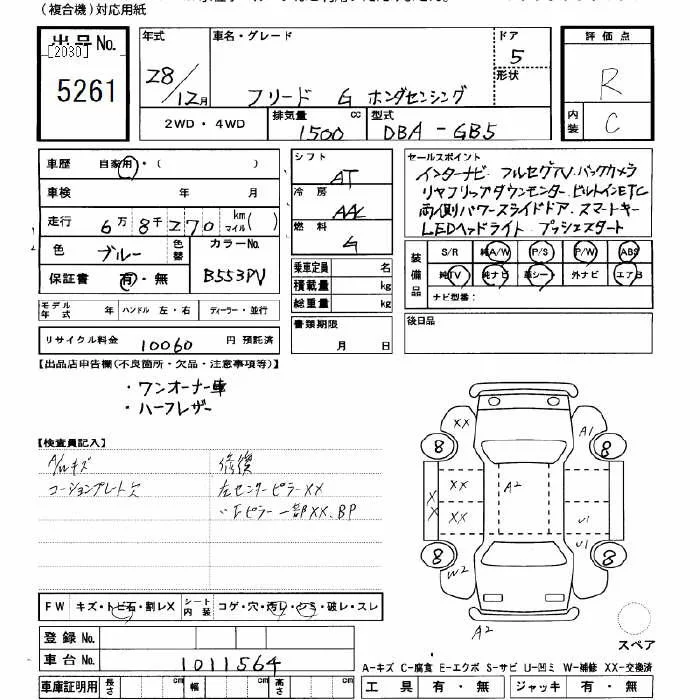 (複合機)対応用紙
出品No.
[2030]
5261
年式
28/12月
車名・グレード
フリード G ホンダセンシング
ドア
5
形状
評価点
R
内装
C
2WD・4WD
排気量
1500
cc
型式
DBA-GB5
車歴 自家用・( )
車検 年 月
走行 6万8千270 km マイル( )
色 ブルー 色替
カラーNo.
B553PV
保証書 有・無
モデル年式 年 ハンドル 左・右 ディーラー・並行
リサイクル料金 10060 円 預託済
シフト
AT
冷房
AAC
燃料
G
乗車定員 名
積載量 kg
総重量 kg
書類期限
月 日
セールスポイント
インターナビ フルセグTV.バックカメラ
リヤフリップダウンモニター.ビルトインETC
両側パワースライドドア.スマートキー
LEDヘッドライト プッシュスタート
装備品
S/R 純A/W P/S P/W ABS
純TV 純ナビ 革シート 外ナビ エアB
ナビ型番:
後日品
【出品店申告欄(不良箇所・欠品・注意事項等)】
・ワンオーナー車
・ハーフレザー
【検査員記入】
A/Wキズ
コーションプレート欠
修復
左センターピラーXX
〃Fピラー一部XX.BP
XX
A1
8
8
XX
XX
X
X
A2
U1
U1
8
8
W2
A2
スペア
FW キズ・トビ石・割レX
シート内装 コゲ・穴・汚レ・シミ・破レ・スレ
登録No.
車台No. 1011564
車庫証明用 長さ cm 幅 cm 高さ cm
A-キズ C-腐食 E-エクボ S-サビ U-凹ミ W-補修 XX-交換済
工具 有・無 ジャッキ 有・無